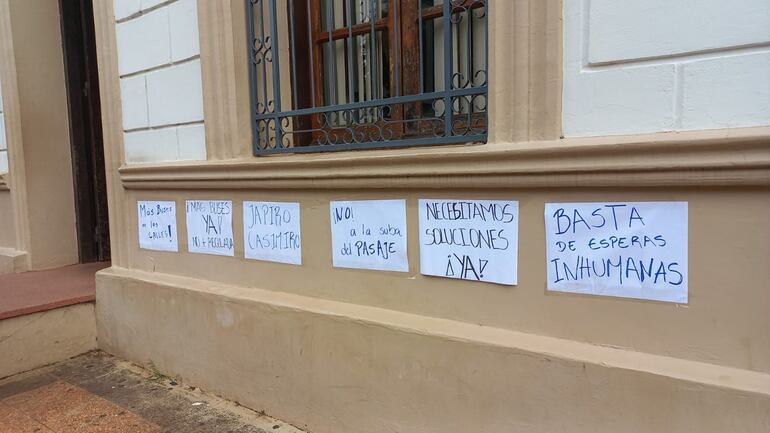 Más Buses
en las
CALLES!
¡MÁS BUSES
YA!
NO + REGULADA
JAPIRO
CASIMIRO
¡NO! a la suba
del PASAJE
NECESITAMOS
SOLUCIONES
¡YA!
BASTA
DE ESPERAS
INHUMANAS